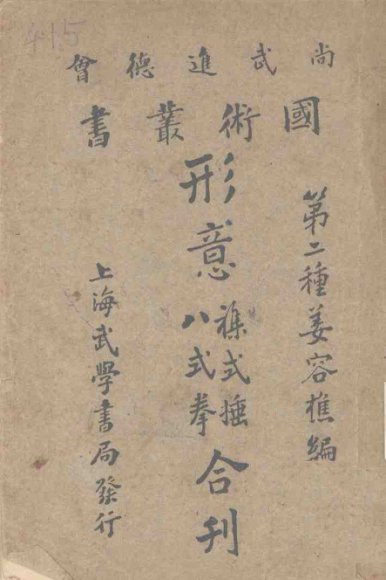 415
尚武進德會
國術叢書
第二種姜容樵編
形意
襍式捶
八式拳
合刊
上海武學書局發行